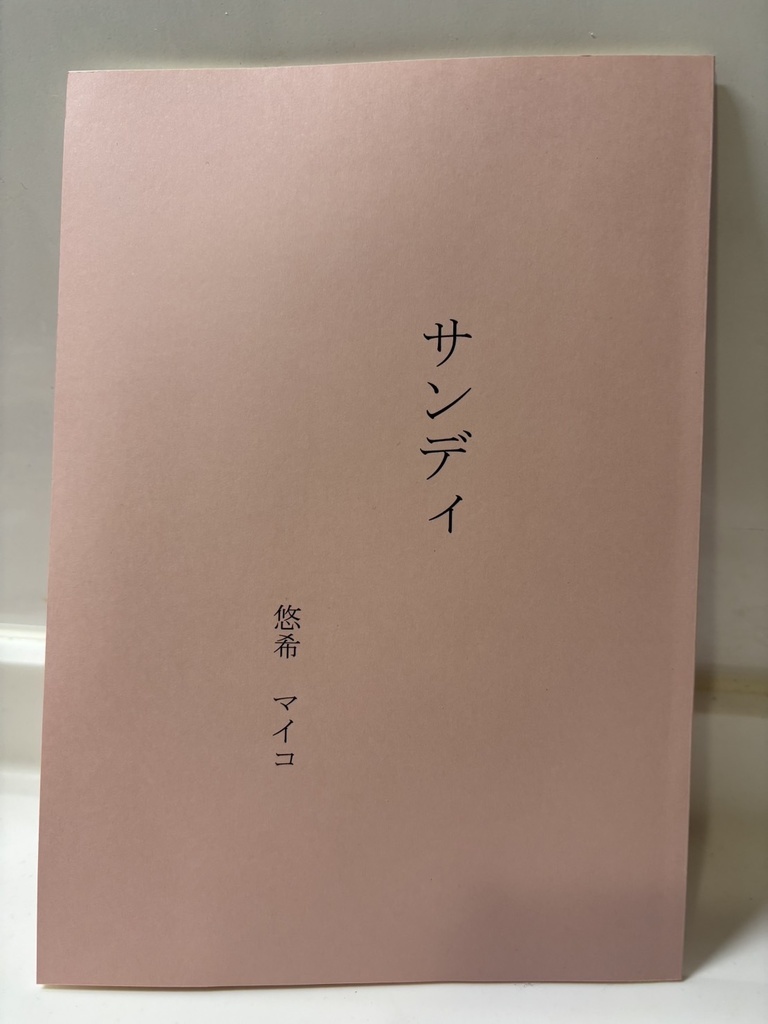 サンディ
悠希　マイコ